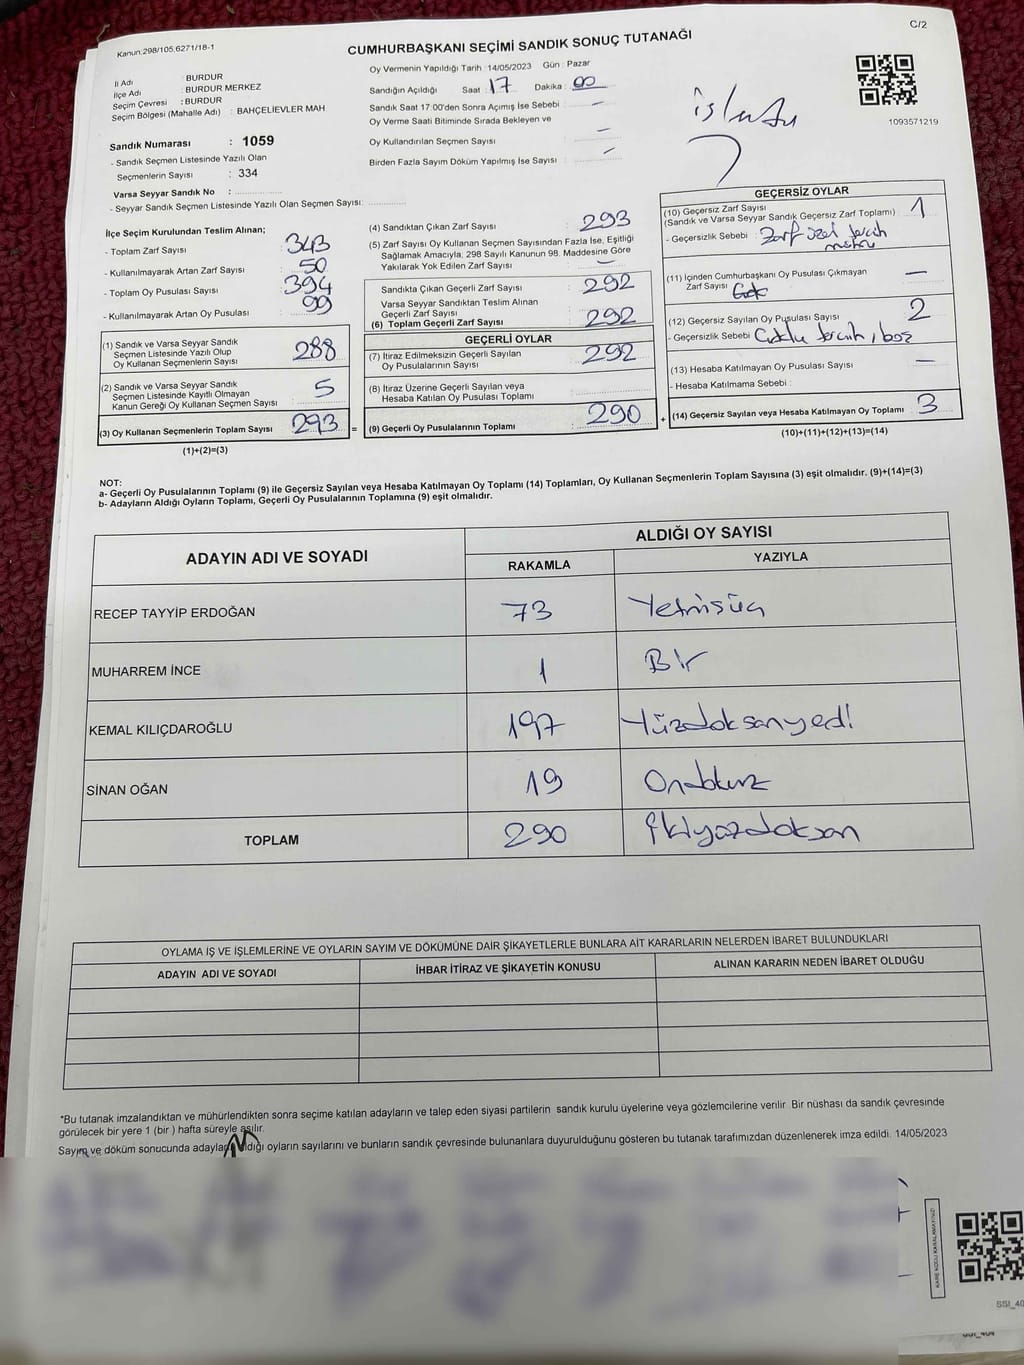 C/2
Kanun:298/105,6271/18-1
CUMHURBAŞKANI SEÇİMİ SANDIK SONUÇ TUTANAĞI
İl Adı : BURDUR
İlçe Adı : BURDUR MERKEZ
Seçim Çevresi : BURDUR
Seçim Bölgesi (Mahalle Adı) : BAHÇELİEVLER MAH
Sandık Numarası : 1059
- Sandık Seçmen Listesinde Yazılı Olan
Seçmenlerin Sayısı : 334
Varsa Seyyar Sandık No :
- Seyyar Sandık Seçmen Listesinde Yazılı Olan Seçmen Sayısı:
Oy Vermenin Yapıldığı Tarih :14/05/2023 Gün : Pazar
Sandığın Açıldığı Saat : 17 Dakika : 00
Sandık Saat 17:00'den Sonra Açımış İse Sebebi : -
Oy Verme Saati Bitiminde Sırada Bekleyen ve
Oy Kullandırılan Seçmen Sayısı : -
Birden Fazla Sayım Döküm Yapılmış İse Sayısı : -
1093571219
İlçe Seçim Kurulundan Teslim Alınan;
- Toplam Zarf Sayısı : 343
- Kullanılmayarak Artan Zarf Sayısı : 50
- Toplam Oy Pusulası Sayısı : 394
- Kullanılmayarak Artan Oy Pusulası : 99
(1) Sandık ve Varsa Seyyar Sandık
Seçmen Listesinde Yazılı Olup
Oy Kullanan Seçmenlerin Sayısı : 288
(2) Sandık ve Varsa Seyyar Sandık
Seçmen Listesinde Kayıtlı Olmayan
Kanun Gereği Oy Kullanan Seçmen Sayısı : 5
(3) Oy Kullanan Seçmenlerin Toplam Sayısı : 293 =
(1)+(2)=(3)
(4) Sandıktan Çıkan Zarf Sayısı : 293
(5) Zarf Sayısı Oy Kullanan Seçmen Sayısından Fazla İse, Eşitliği
Sağlamak Amacıyla; 298 Sayılı Kanunun 98. Maddesine Göre
Yakılarak Yok Edilen Zarf Sayısı : -
Sandıkta Çıkan Geçerli Zarf Sayısı : 292
Varsa Seyyar Sandıktan Teslim Alınan
Geçerli Zarf Sayısı
(6) Toplam Geçerli Zarf Sayısı : 292
GEÇERLİ OYLAR
(7) İtiraz Edilmeksizin Geçerli Sayılan
Oy Pusulalarının Sayısı : 292
(8) İtiraz Üzerine Geçerli Sayılan veya
Hesaba Katılan Oy Pusulası Toplamı :
(9) Geçerli Oy Pusulalarının Toplamı : 290 +
GEÇERSİZ OYLAR
(10) Geçersiz Zarf Sayısı : 1
(Sandık ve Varsa Seyyar Sandık Geçersiz Zarf Toplamı)
- Geçersizlik Sebebi : Zarf üzeri tercih
mührü
(11) İçinden Cumhurbaşkanı Oy Pusulası Çıkmayan
Zarf Sayısı : -
(12) Geçersiz Sayılan Oy Pusulası Sayısı : 2
- Geçersizlik Sebebi : Çoklu tercih, boş
(13) Hesaba Katılmayan Oy Pusulası Sayısı : -
- Hesaba Katılmama Sebebi :
(14) Geçersiz Sayılan veya Hesaba Katılmayan Oy Toplamı : 3
(10)+(11)+(12)+(13)=(14)
NOT:
a- Geçerli Oy Pusulalarının Toplamı (9) ile Geçersiz Sayılan veya Hesaba Katılmayan Oy Toplamı (14) Toplamları, Oy Kullanan Seçmenlerin Toplam Sayısına (3) eşit olmalıdır. (9)+(14)=(3)
b- Adayların Aldığı Oyların Toplamı, Geçerli Oy Pusulalarının Toplamına (9) eşit olmalıdır.
ADAYIN ADI VE SOYADI ALDIĞI OY SAYISI
RAKAMLA YAZIYLA
RECEP TAYYİP ERDOĞAN 73 Yetmişüç
MUHARREM İNCE 1 Bir
KEMAL KILIÇDAROĞLU 197 Yüzdoksanyedi
SİNAN OĞAN 19 Ondokuz
TOPLAM 290 İkiyüzdoksan
OYLAMA İŞ VE İŞLEMLERİNE VE OYLARIN SAYIM VE DÖKÜMÜNE DAİR ŞİKAYETLERLE BUNLARA AİT KARARLARIN NELERDEN İBARET BULUNDUKLARI
ADAYIN ADI VE SOYADI İHBAR İTİRAZ VE ŞİKAYETİN KONUSU ALINAN KARARIN NEDEN İBARET OLDUĞU
*Bu tutanak imzalandıktan ve mühürlendikten sonra seçime katılan adayların ve talep eden siyasi partilerin sandık kurulu üyelerine veya gözlemcilerine verilir. Bir nüshası da sandık çevresinde
görülecek bir yere 1 (bir ) hafta süreyle asılır.
Sayım ve döküm sonucunda adayların aldığı oyların sayılarını ve bunların sandık çevresinde bulunanlara duyurulduğunu gösteren bu tutanak tarafımızdan düzenlenerek imza edildi. 14/05/2023
KARE KODU KARALAMAYINIZ!
SSI_40